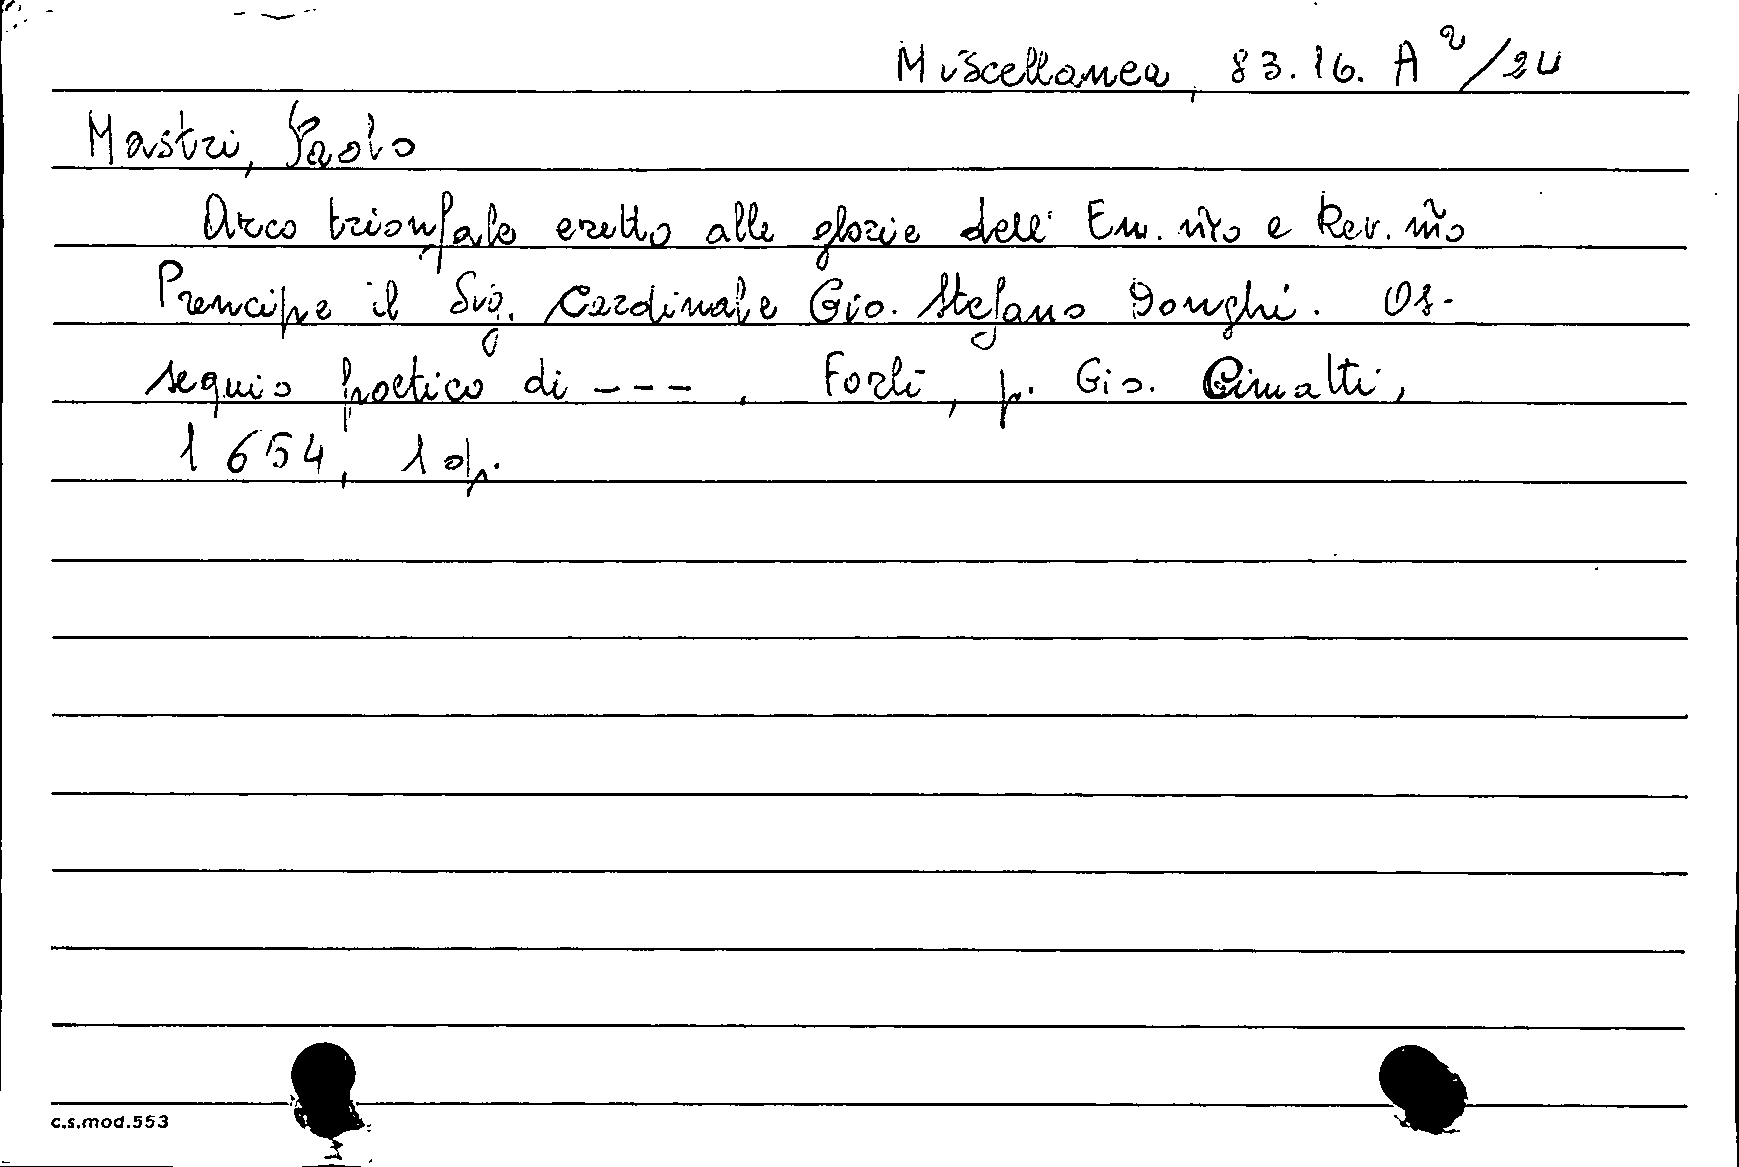 Miscellanea, 83.16. A²/24
Mastri, Paolo
Arco trionfale eretto alle glorie dell' Em. m̃o e Rev. m̃o
Prencipe il Sig. Cardinale Gio. Stefano Donghi. Os-
sequio poetico di ---. Forlì, p. Gio. Cimatti,
1654, 1 op.
c.s.mod.553